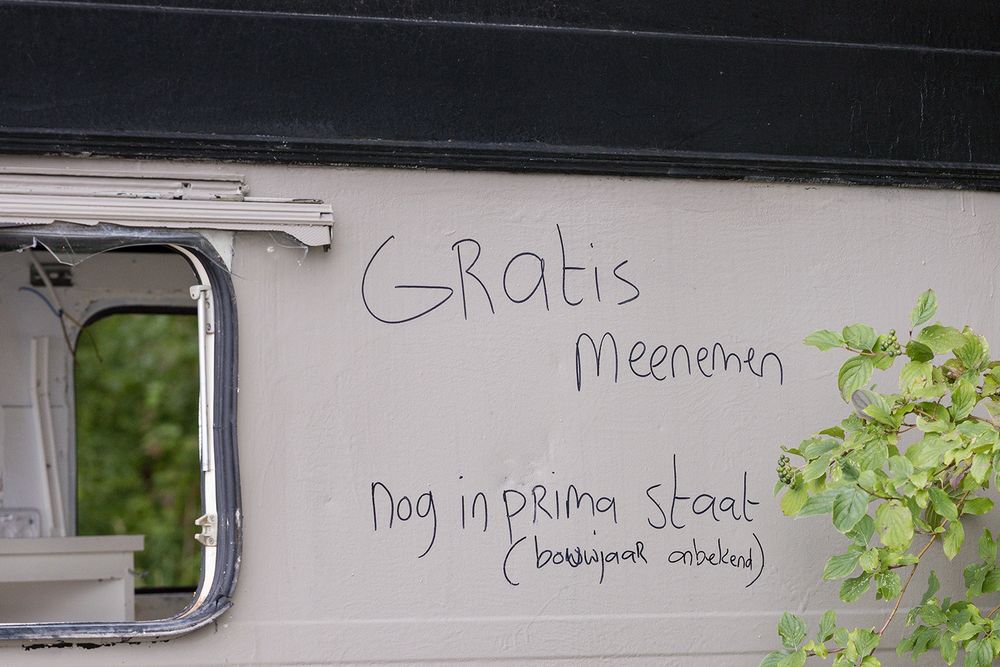 GRatis
Meenemen
nog in pRima staat
(bouwjaaR onbekend)